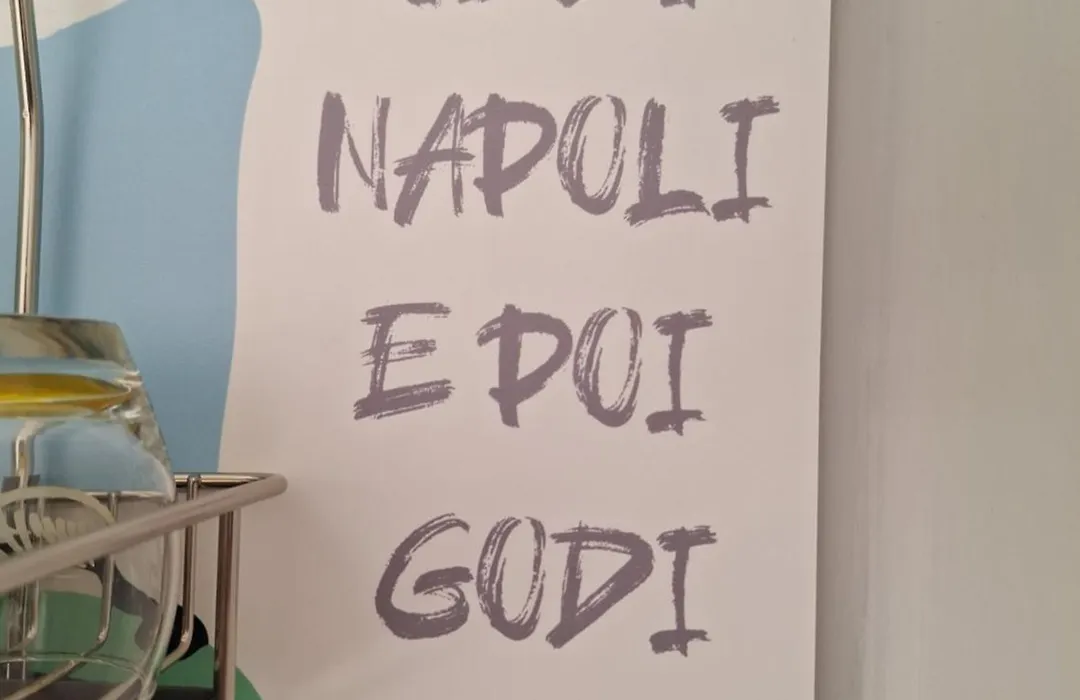 NAPOLI
E POI
GODI